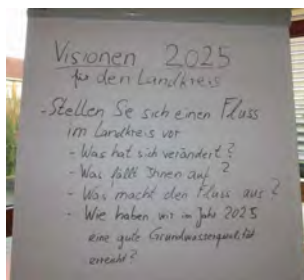 Visionen 2025
für den Landkreis
- Stellen Sie sich einen Fluss
im Landkreis vor
- Was hat sich verändert?
- Was fällt Ihnen auf?
- Was macht den Fluss aus?
- Wie haben wir im Jahr 2025
eine gute Grundwasserqualität
erreicht?